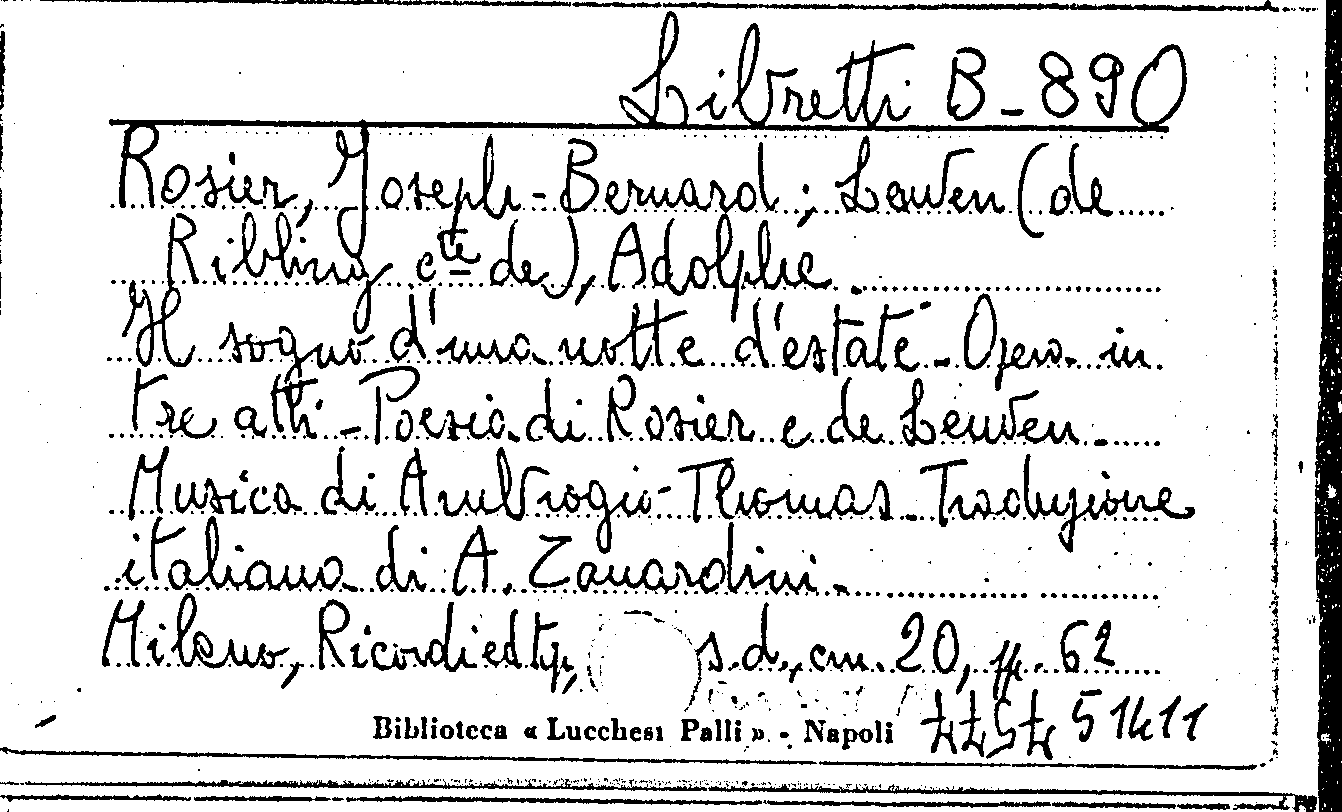 Libretti B-890
Rosier, Joseph-Bernard; Leuven (de
Ribling c^te de), Adolphe.
Il sogno d'una notte d'estate - Opera in
tre atti - Poesia di Rosier e de Leuven.
Musica di Ambrogio Thomas - Traduzione
italiana di A. Zanardini.
Milano, Ricordi ed tip, s.d., cm. 20, pp. 62
Biblioteca « Lucchesi Palli » - Napoli